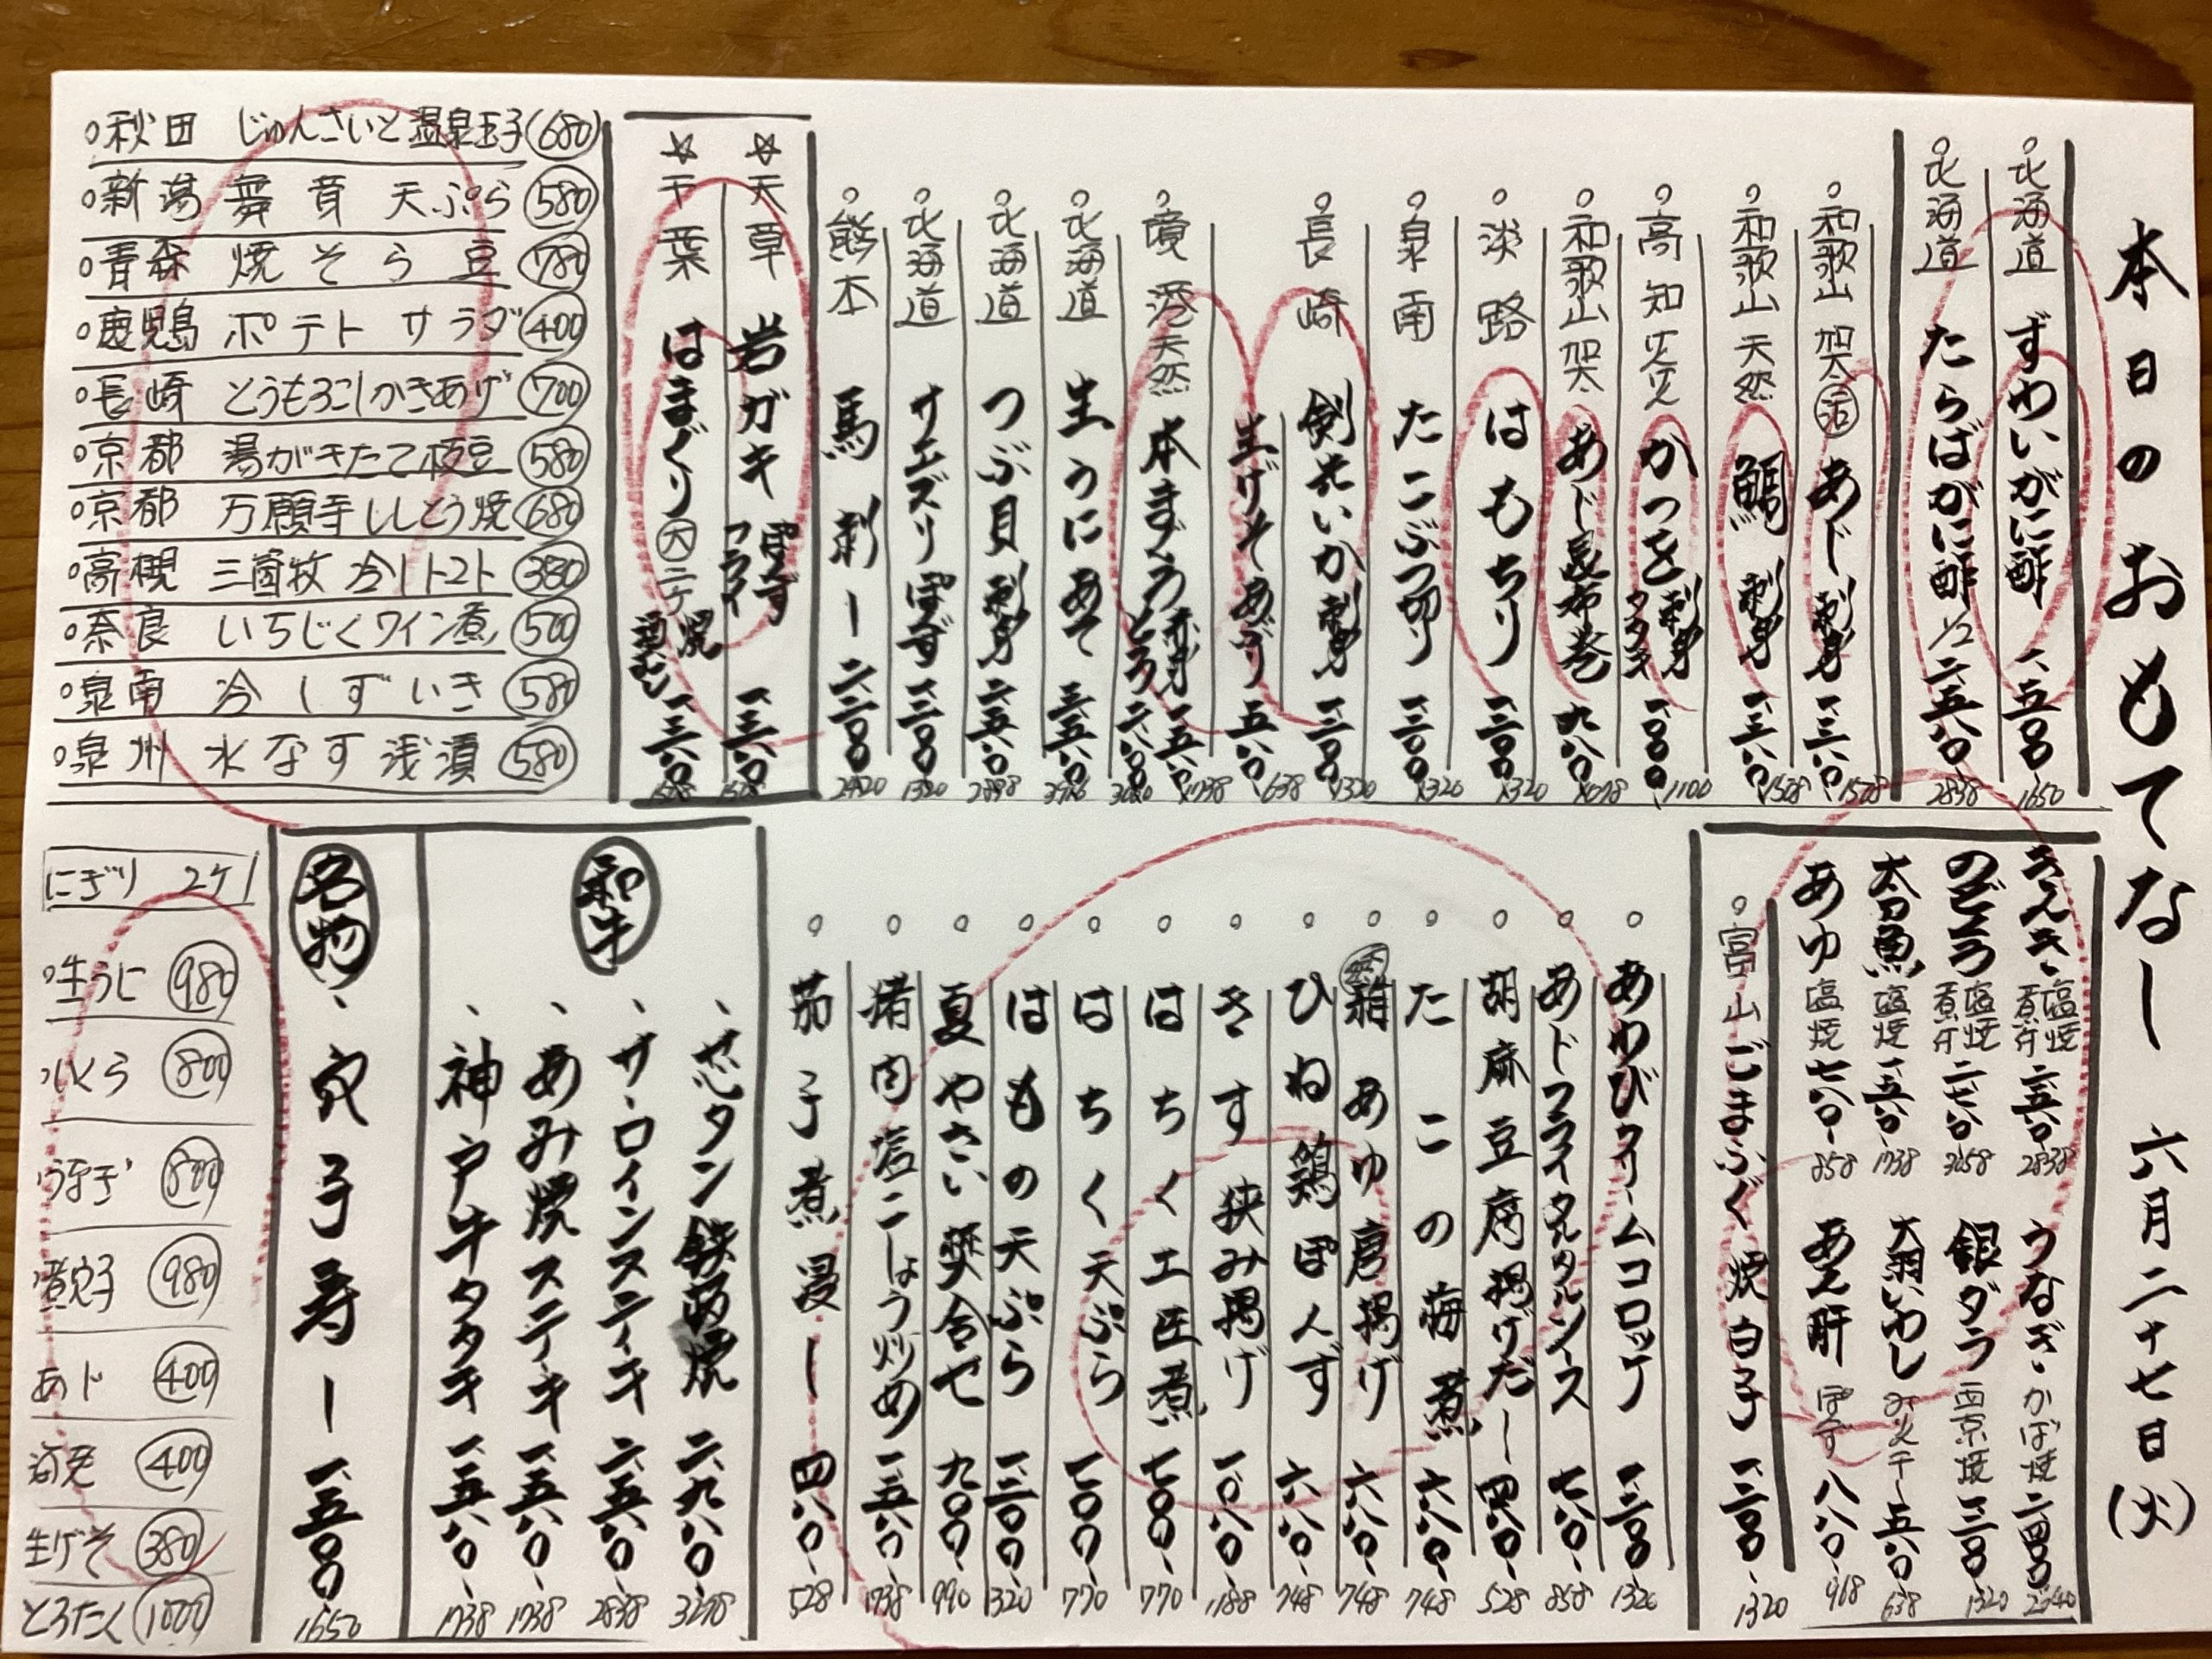 本日のおもてなし 六月二十七日(火)
北海道 ずわいがに酢 一、五〇〇 1650
北海道 たらばがに酢 1/2 二、五八〇 2838
和歌山 加太 活 あじ 刺身 一、三八〇 1508
和歌山 天然 鯛 刺身 一、三八〇 1508
高知 かつを 刺身 タタキ 一、〇〇〇 1100
和歌山 加太 あじ昆布巻 九八〇 1078
淡路 はもちり 一、二〇〇 1320
泉南 たこぶつ切り 一、二〇〇 1320
長崎 剣先いか 刺身 一、二〇〇 1320
生げそ あぶり 五八〇 638
境港 天然 本まぐろ 赤身 一、五八〇 1738 とろ 二、八〇〇 3080
北海道 生うにあて 三、五八〇
北海道 つぶ貝 刺身 二、五八〇
北海道 サエズリ ぽんず 一、二〇〇 1320
熊本 馬刺し 二、二〇〇 2420
☆天草 岩ガキ ぽんず フライ 一、三八〇 1508
☆千葉 はまぐり 大 二ケ 焼 酒むし 一、三八〇 1508
秋田 じゅんさいと温泉玉子 680
新潟 舞茸 天ぷら 580
青森 焼そら豆 780
鹿児島 ポテトサラダ 400
長崎 とうもろこしかきあげ 700
京都 湯がきたて枝豆 580
京都 万願寺ししとう焼 680
高槻 三箇牧 冷しトマト 380
奈良 いちじくワイン煮 500
泉南 冷しずいき 580
泉州 水なす浅漬 580
きんき 塩焼 煮付 二、五八〇 2838 うなぎ かば焼 二、四〇〇 2640
のどぐろ 塩焼 煮付 二、七八〇 3058 銀ダラ 西京焼 一、二〇〇 1320
太刀魚 塩焼 一、五八〇 1738 大羽いわし 一夜干し 五八〇 638
あゆ 塩焼 七八〇 858 あん肝 ぽんず 八八〇 968
富山 ごまふぐ 焼白子 一、二〇〇 1320
あわびクリームコロッケ 一、二〇〇 1320
あじフライタルタルソース 七八〇 858
胡麻豆腐揚げだし 四八〇 528
たこの海煮 六八〇 748
稚あゆ唐揚げ 六八〇 748
ひね鶏ぽんず 六八〇 748
きす 挟み揚げ 一、〇八〇 1188
はちく土佐煮 七〇〇 770
はちく天ぷら 七〇〇 770
はもの天ぷら 一、二〇〇 1320
夏やさい焚合せ 九〇〇 990
猪肉塩こしょう炒め 一、五八〇 1738
茄子煮浸し 四八〇 528
和牛
芯タン 鉄板焼 二、九八〇 3278
サーロインステーキ 二、五八〇 2838
あみ焼ステーキ 一、五八〇 1738
神戸牛タタキ 一、五八〇 1738
名物
穴子寿し 一、五〇〇 1650
にぎり 2ケ
生うに 980
いくら 800
うなぎ 800
煮穴子 980
あじ 400
海老 400
生げそ 380
とろたく 1000